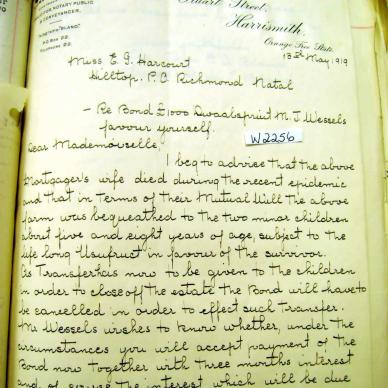 NOTARY PUBLIC
& CONVEYANCER.
P.O. BOX 22.
TELEPHONE 22.
Stuart Street,
Harrismith.
Orange Free State.
13th May, 1919
Miss E G. Harcourt
Hilltop. P.O. Richmond Natal
- Re Bond £1000 Dwaalspruit M. J. Wessels
favour yourself.
W2256
Dear Mademouselle,
I beg to advise that the above
Mortgager's wife died during the recent epidemic
and that in terms of their Mutual Will the above
farm was bequeathed to the two minor children
about five and eight years of age, subject to the
life long Usufruct in favour of the survivor.
As Transfer has now to be given to the children
in order to close off the estate the Bond will have to
be cancelled in order to effect such transfer.
Mr Wessels wishes to know whether, under the
circumstances you will accept payment of the
Bond now together with three months interest
and of course the interest which will be due